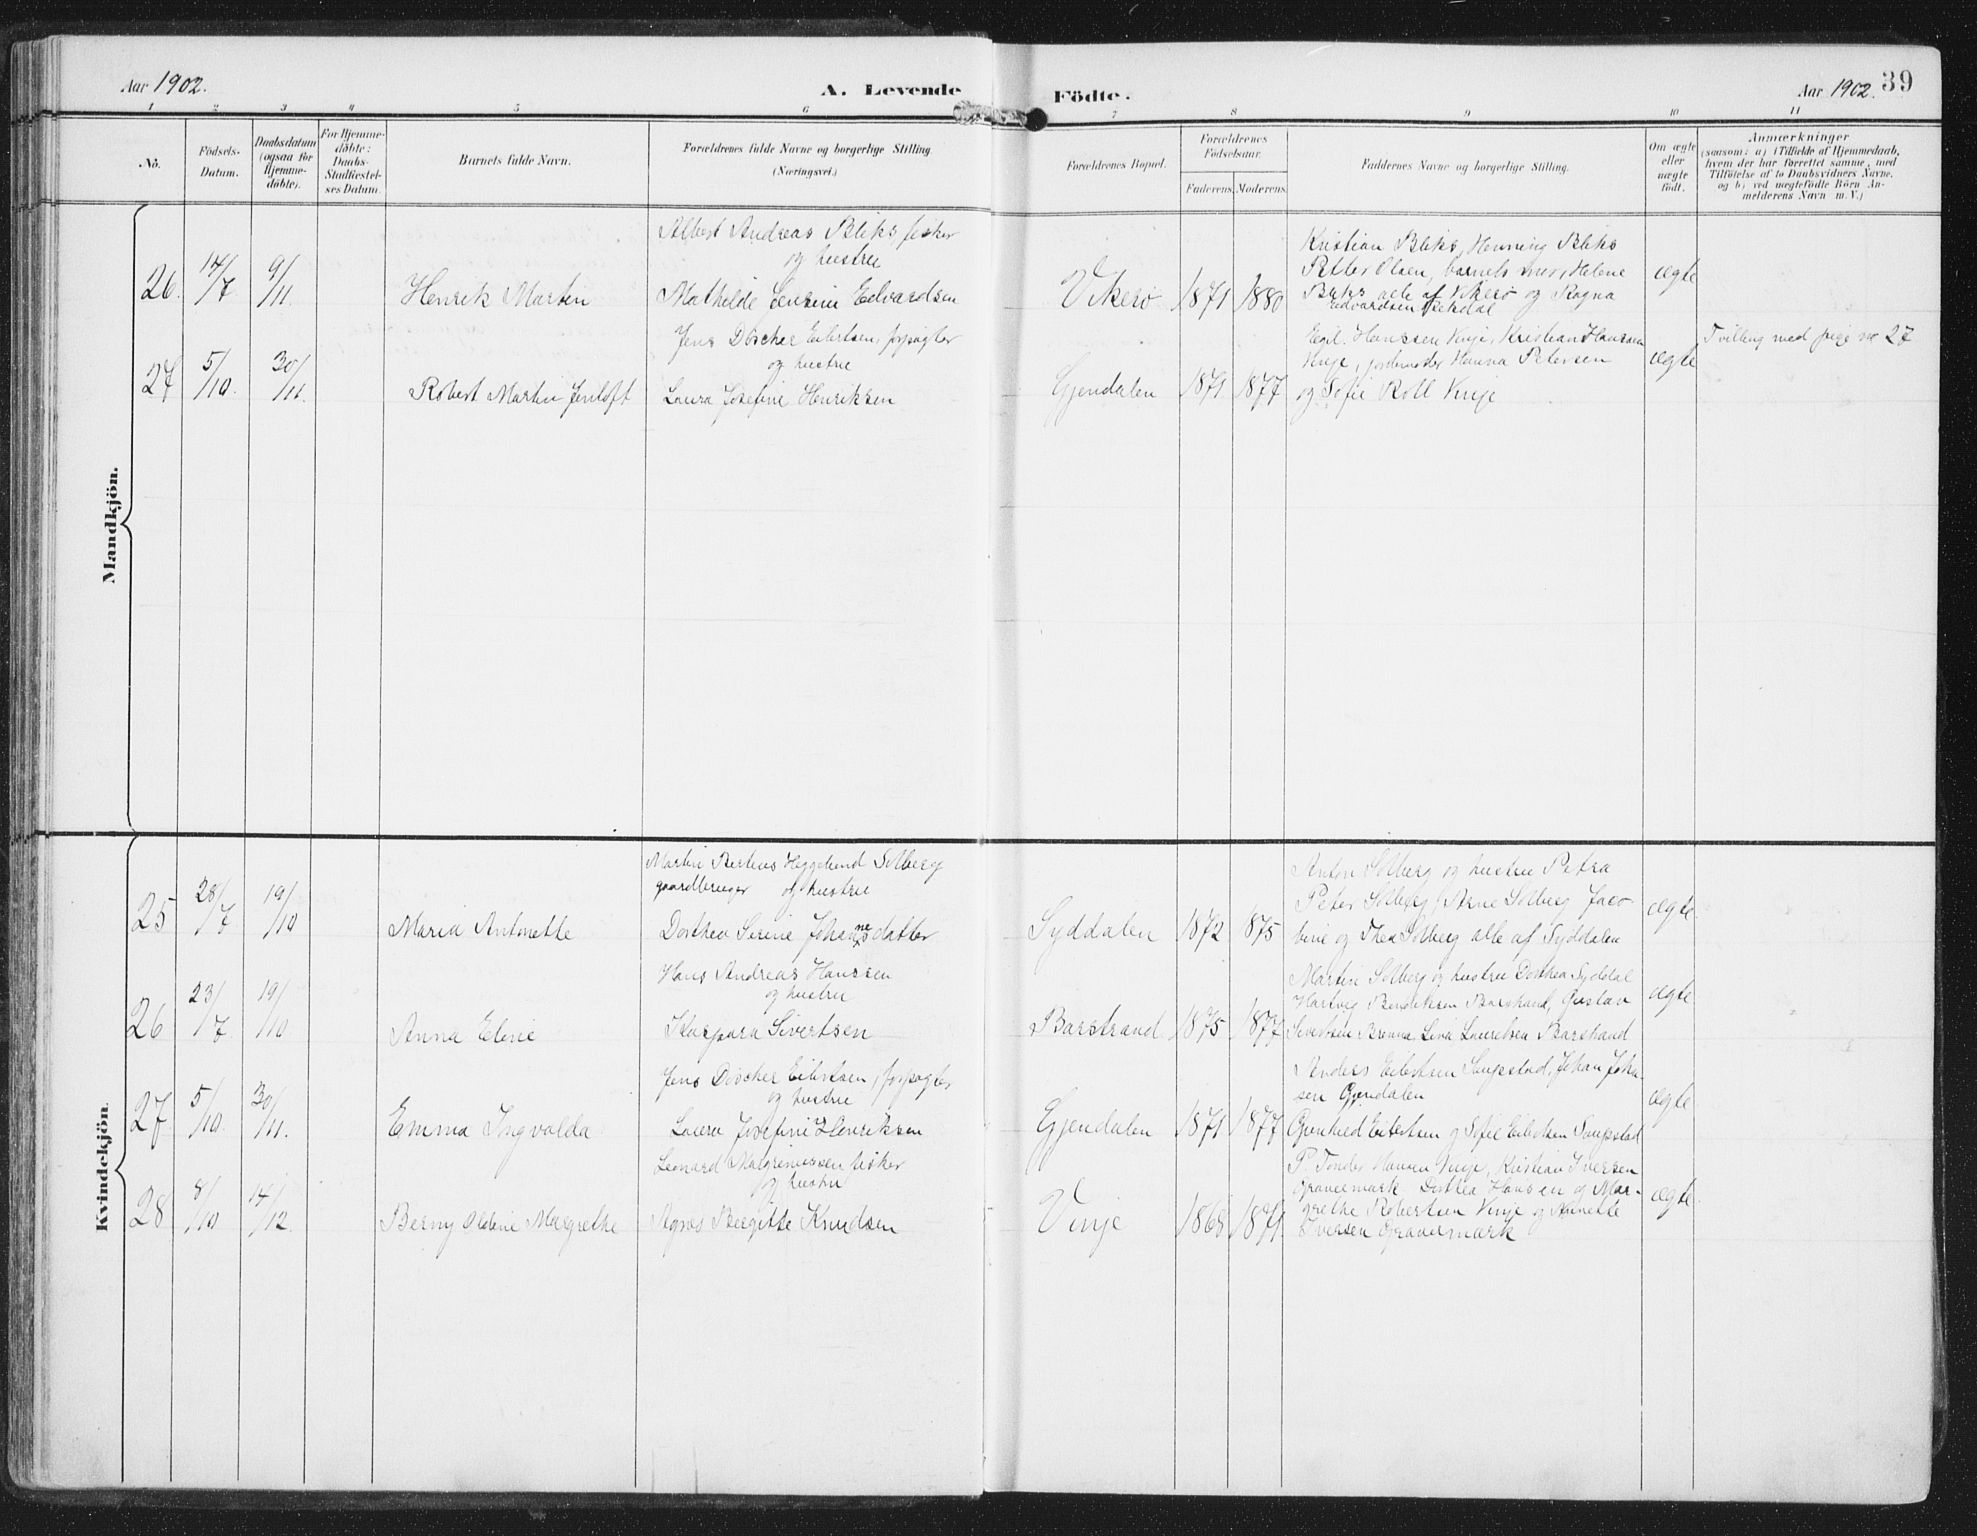 Aar 1902.
A. Levende
Födte.
Aar 1902.
39
1 2 3 4 5 6 7 8 9 10 11
No.
Födsels-
Datum.
Daabsdatum
(ogsaa for
Hjemme-
döbte).
For Hjemme-
döbte:
Daabs-
Stadfæstel-
ses Datum.
Barnets fulde Navn.
Forældrenes fulde Navne og borgerlige Stilling
(Næringsvei.)
Forældrenes Bopæl.
Forældrenes
Födselsaar.
Faderens.
Moderens.
Faddernes Navne og borgerlige Stilling.
Om ægte
eller
uægte
födt.
Anmærkninger
(saasom: a) i Tilfælde af Hjemmedaab,
hvem der har forrettet samme, med
Tilföielse af to Daabsvidners Navne.
og b) ved uægtefödte Börn An-
melderens Navn m. V.)
Mandkjön.
26.
14/7
9/11
Henrik Martin
Albert Andreas Bliks, fisker
og hustru
Mathilde Jensine Edvardsen
Vikerö
1871
1880
Kristian Bliks, Henning Bliks
Petter Olsen, barnets mor, Helene
Bliks alle af Vikerö og Ragna
Edvardsen
ægte
27
5/10.
30/11.
Robert Martin Jentoft
Jens Discher Eilertsen, forpagter
og hustru
Laura Josefine Henriksen
Gjendalen
1871
1877
Egil. Hanssen Vinje, Kristian Hanssen
Vinje, jordemoder Hanna Petersen
og Sofie Roll Vinje
ægte
Tvilling med pige no 27
Kvindekjön.
25
28/7
19/10
Maria Antonette
Martin Bertheus Heggelund Solberg
gaardbruger og hustru
Dorthea Sirine Johannesdatter
Syddalen
1872
1875
Anton Solberg og hustru Petra
Peter Solberg, Arne Solberg Jaco-
bine og Thea Solberg alle af Syddalen
ægte
26
23/7
19/10
Anna Eline
Hans Andreas Hanssen
og hustru
Kaspara Sivertsen
Barstrand
1875
1877
Martin Solberg og hustru Dorthea Syddal
Hartvig Bendiksen Barstrand, Gustav
Sivertsen Brenna, Lina Lauritsen Barstrand
ægte
27
5/10.
30/11.
Emma Ingvalda
Jens Discher Eilertsen, forpagter
og hustru
Laura Josefine Henriksen
Gjendalen
1871
1877
Anders Eilertsen Saupstad, Johan Joha-
sen Gjendalen
Gunhild Eilertsen og Sofie Eilertsen Saupstad
ægte
28
8/10
14/12
Berny Oldine Margrethe
Leonard Margreniussen fisker
og hustru
Agnes Bergitte Knudsen
Vinje
1868
1871
P. Tønder Hansen Vinje, Kristian Iversen
Gravermark Dorthea Hansen og Mar-
grethe Robertsen Vinje og Annette
Iversen Gravermark
ægte